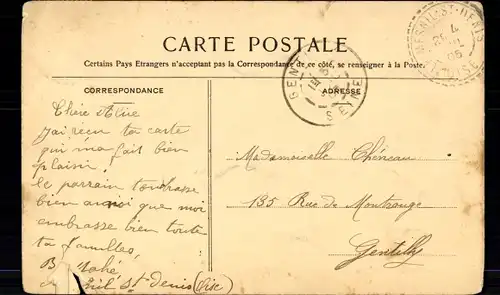 CARTE POSTALE
Certains Pays Etrangers n'acceptant pas la Correspondance de ce côté, se renseigner à la Poste.
CORRESPONDANCE
ADRESSE
Chère
j'ai reçu ta carte
qui m'a fait bien
plaisir.
le parrain t'embrasse
bien aussi que moi
embrasse bien toute
ta familles
St-Denis (Oise)
Mademoiselle Chéneau
135 Rue de Montrouge
Gentilly